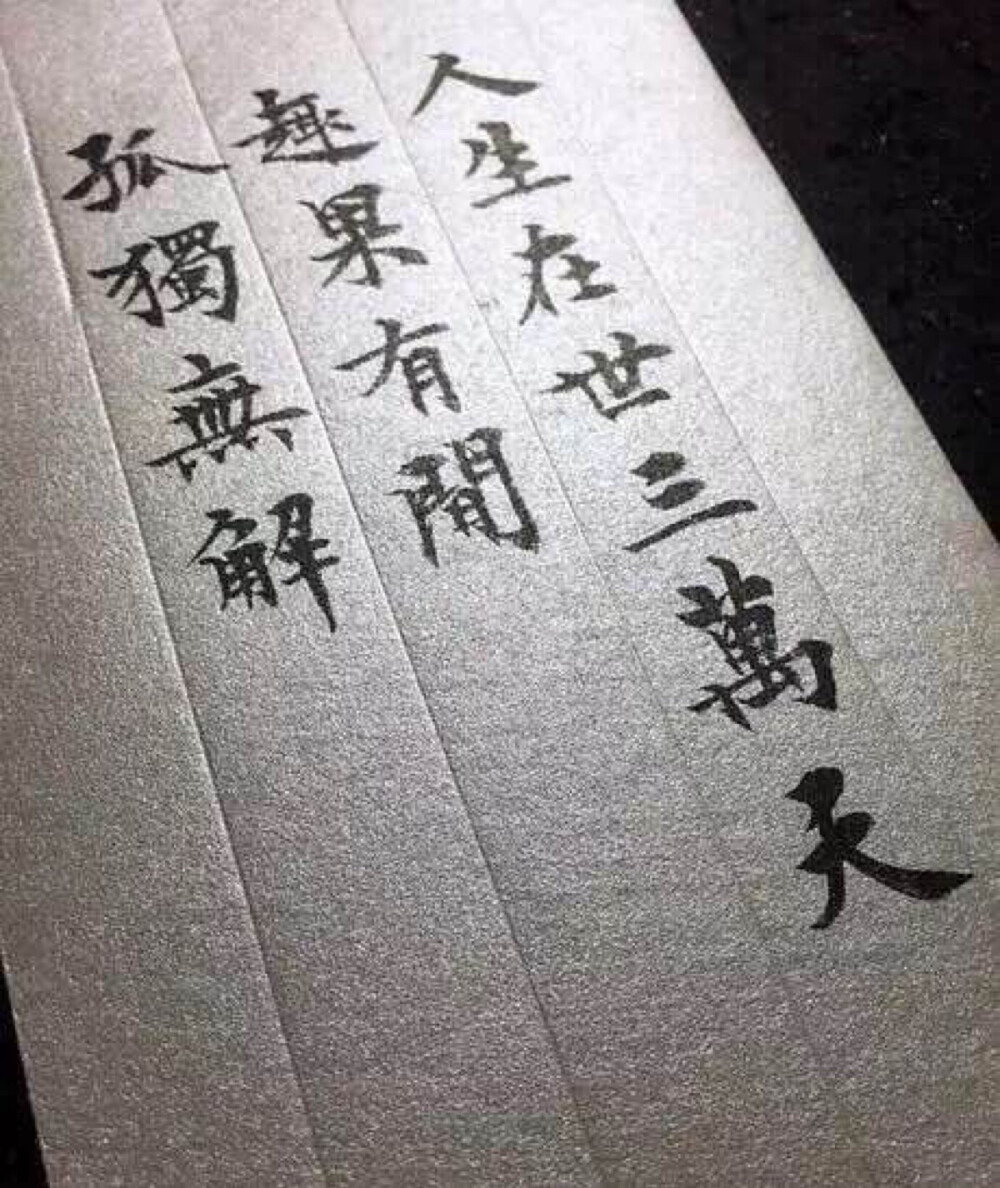 人生在世三萬天
趣果有間
孤獨無解